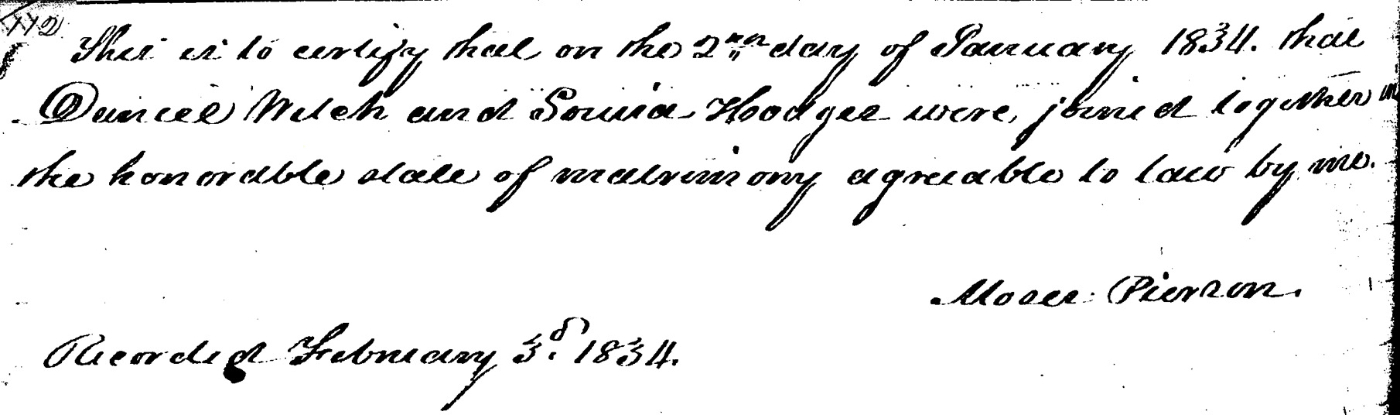 112
This is to certify that on the 2nd day of January 1834. that
Daniel Welch and Louisa Hodges were joined together in
the honorable state of matrimony agreable to law by me.
Moses Pierson.
Recorded February 3d. 1834.